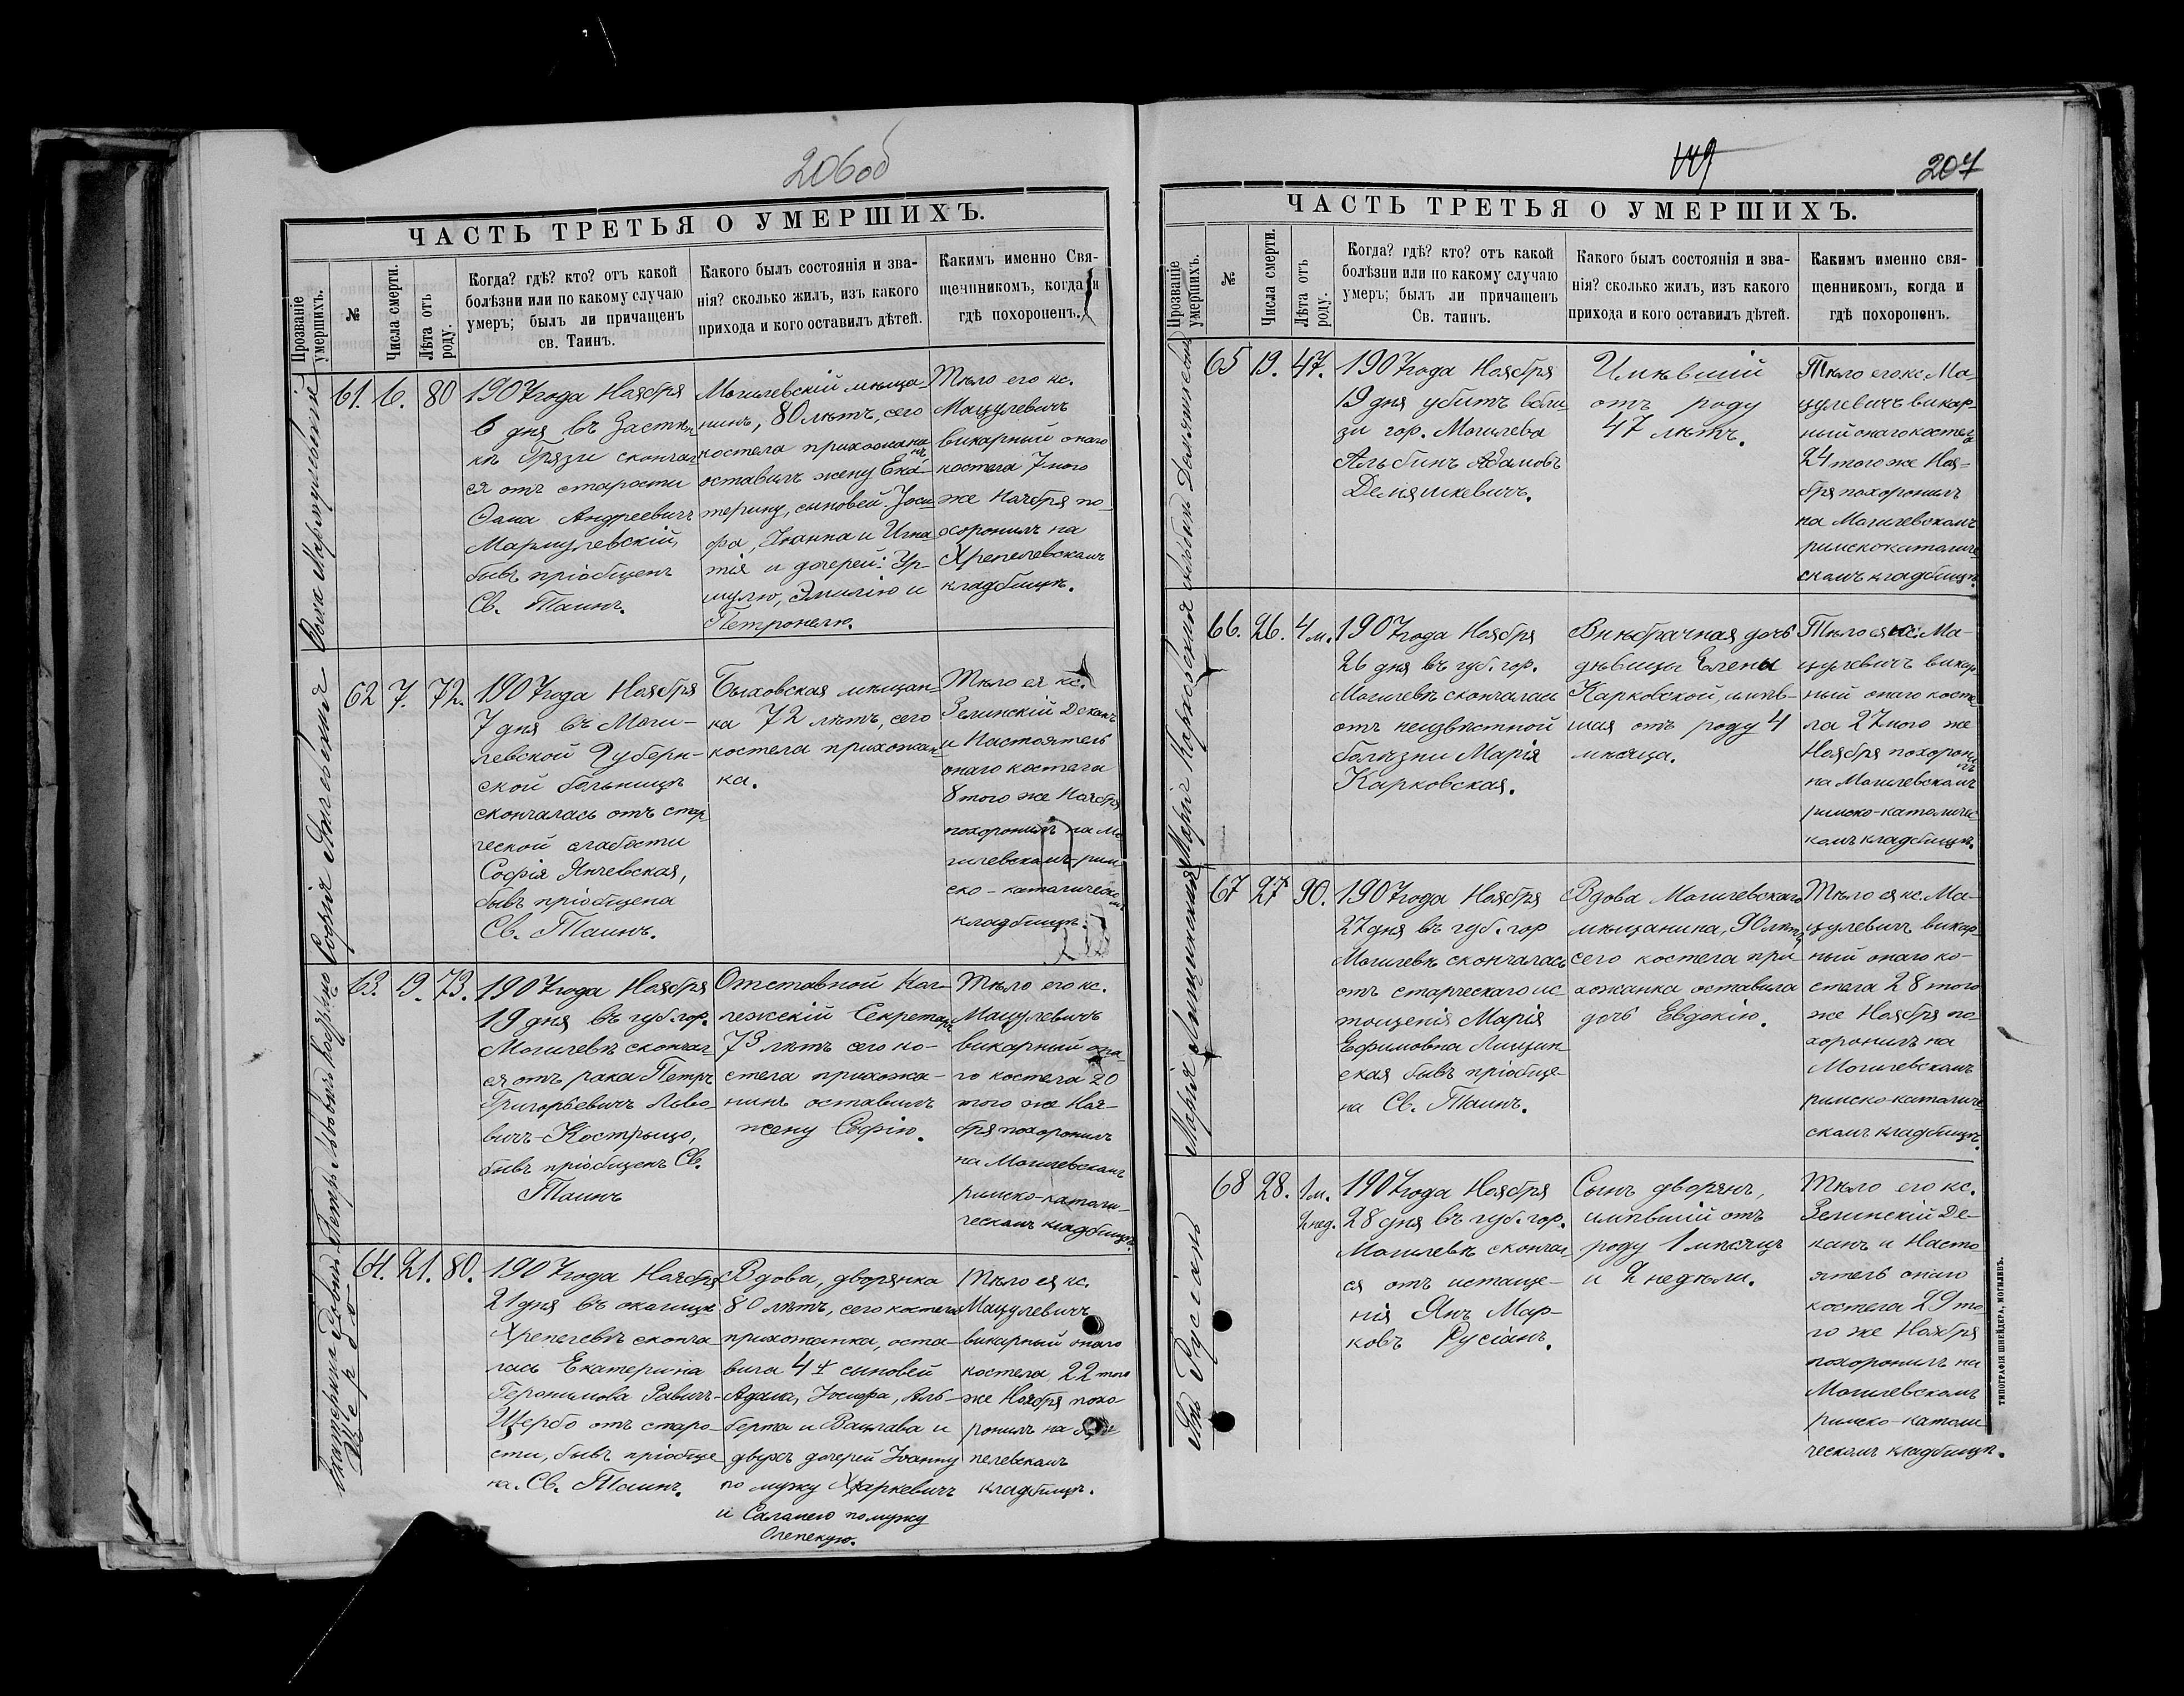 206 об
ЧАСТЬ ТРЕТЬЯ О УМЕРШИХЪ.
Прозваніе умершихъ.
№
Числа смерти.
Лѣта отъ роду.
Когда? гдѣ? кто? отъ какой
болѣзни или по какому случаю
умеръ; былъ ли причащенъ
св. Таинъ.
Какого былъ состоянія и зва-
нія? сколько жилъ, изъ какого
прихода и кого оставилъ дѣтей.
Каким именно Свя-
щенникомъ, когда и
гдѣ похороненъ.
61. 6. 80
1907 года Ноября
6 дня въ Застѣн-
кѣ Грязи скончал
ся отъ старости
Ѳома Андреевичъ
бывъ пріобщенъ
Св. Таинъ.
Могилевскій мѣща-
нинъ, 80 лѣтъ, сего
костела прихожанинъ
оставилъ жену Ека-
терину, сыновей: Іоси
фа, Іоанна и Игна
тія и дочерей: Ур-
шулю, Эмилію и
Петронелю.
Тѣло его кс.
Мацулевичъ
викарный онаго
костела 7 того
же Ноября по-
хоронилъ на
Хрепелевскомъ
кладбищѣ.
Софія Янчевская
62 7. 72.
1907 года Ноября
7 дня въ Моги-
левской Губерн-
ской больницѣ
скончалась отъ стар
ческой слабости
Софія Янчевская,
бывъ пріобщена
Св. Таинъ.
Быховская мѣщан-
ка 72 лѣтъ, сего
костела прихожан-
ка.
Тѣло ея кс.
Зелинскій Деканъ
и Настоятель
онаго костела
8 того же Ноября
похоронилъ на Мо
гилевскомъ рим
ско-католическомъ
кладбищѣ.
63. 19. 73.
1907 года Ноября
19 дня въ губ. гор.
Могилевѣ скончал
ся отъ рака Петръ
Григорьевичъ Льво-
вичъ-Кострыцо,
бывъ пріобщенъ Св.
Таинъ
Отставной Кол-
лежскій Секретарь
73 лѣтъ сего ко-
стела прихожа-
нинъ оставилъ
жену Софію.
Тѣло его кс.
Мацулевичъ
викарный она-
го костела 20
того же Ноя-
бря похоронилъ
на Могилевскомъ
римско-католи-
ческомъ кладбищѣ.
64. 21. 80.
1907 года Ноября
21 дня въ околицѣ
Хрепелевѣ сконча
лась Екатерина
Геронимова Равичъ-
Щербо отъ старо-
сти, бывъ пріобще
на. Св. Таинъ.
Вдова, дворянка
80 лѣтъ, сего костела
прихожанка, оста-
вила 4х сыновей
Адама, Іосифа, Аль-
берта и Вацлава и
двухъ дочерей Іоанну
по мужу Харкевичъ
и Саломею по мужу
Тѣло ея кс.
Мацулевичъ
викарный онаго
костела, 22 того
же Ноября похо
ронилъ на Хре
пелевскомъ
кладбищѣ.
149
207
ЧАСТЬ ТРЕТЬЯ О УМЕРШИХЪ.
Прозваніе умершихъ.
№
Числа смерти.
Лѣта отъ роду.
Когда? гдѣ? кто? отъ какой
болѣзни или по какому случаю
умеръ; былъ ли причащенъ
Св. таинъ.
Какого былъ состоянія и зва-
нія? сколько жилъ, изъ какого
прихода и кого оставилъ дѣтей.
Каким именно свя-
щенникомъ, когда и
гдѣ похороненъ.
65 19. 47.
1907 года Ноября
19 дня убитъ вбли-
зи гор. Могилева
Альбинъ Адамовъ
Демяшкевичъ.
Имѣвшій
отъ роду
47 лѣтъ.
Тѣло его кс. Ма-
цулевичъ викар-
ный онаго костела
24 того же Ноя-
бря похоронилъ
на Могилевскомъ
римско католиче
скомъ кладбищѣ.
Марія Карковская
66. 26. 4 м.
1907 года Ноября
26 дня въ губ. гор.
Могилевѣ скончалась
отъ неизвѣстной
болѣзни Марія
Карковская.
Внѣбрачная дочь
дѣвицы Елены
Карковской, имѣв-
шая отъ роду 4
мѣсяца.
Тѣло ея кс. Ма-
цулевичъ викар
ный онаго косте
ла 27 того же
Ноября похоронилъ
на Могилевскомъ
римско-католичес
комъ кладбищѣ.
Марія Лищинская
67 27 90.
1907 года Ноября
27 дня въ губ. гор
Могилевѣ скончалась
отъ старческаго ис-
тощенія Марія
Ефимовна Лищин
ская бывъ пріобще-
на Св. Таинъ.
Вдова Могилевскаго
мѣщанина, 90 лѣтъ,
сего костела при-
хожанка оставила
дочь Евдокію.
Тѣло ея кс. Ма-
цулевичъ викар-
ный онаго ко-
стела 28 того
же Ноября по-
хоронилъ на
Могилевскомъ
римско-католиче-
скомъ кладбищѣ.
Янъ Русіанъ
68 28. 1 м. 2 нед.
1907 года Ноября
28 дня въ губ. гор.
Могилевѣ скончал-
ся отъ истоще-
нія Янъ Мар-
ковъ Русіанъ.
Сынъ дворянъ,
имѣвшій отъ
роду 1 мѣсяцъ
и 2 недѣли.
Тѣло его кс.
Зелинскій Де-
канъ и Насто
ятель онаго
костела 29 то-
го же Ноября
похоронилъ на
Могилевскомъ
римско-католи
ческомъ кладбищѣ.
ТИПОГРАФІЯ ШНЕЙДЕРА, МОГИЛЕВЪ.